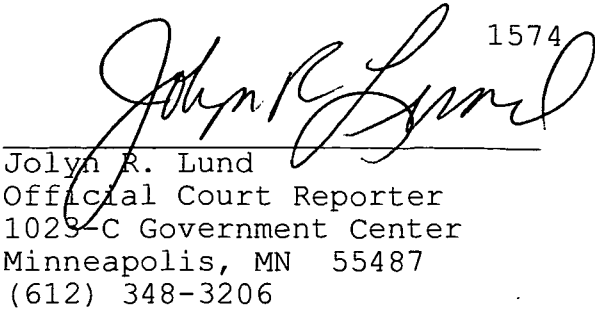 1574
Jolyn R. Lund
Jolyn R. Lund
Official Court Reporter
1023-C Government Center
Minneapolis, MN 55487
(612) 348-3206